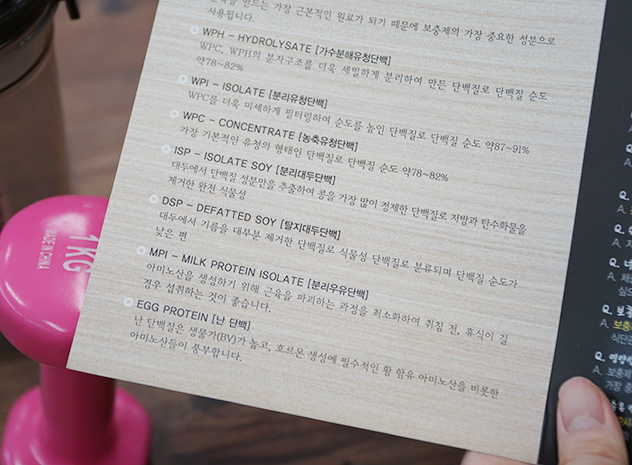 만드는 가장 근본적인 원료가 되기 때문에 보충제의 가장 중요한 성분으로
사용됩니다.
WPH – HYDROLYSATE [가수분해유청단백]
WPC, WPH의 분자구조를 더욱 세밀하게 분리하여 만든 단백질로 단백질 순도
약78~82%
WPI – ISOLATE [분리유청단백]
WPC를 더욱 미세하게 필터링하여 순도를 높인 단백질로 단백질 순도 약87~91%
WPC – CONCENTRATE [농축유청단백]
가장 기본적인 유청의 형태인 단백질로 단백질 순도 약78~82%
ISP – ISOLATE SOY [분리대두단백]
대두에서 단백질 성분만을 추출하여 콩을 가장 많이 정제한 단백질로 지방과 탄수화물을
제거한 완전 식물성
DSP – DEFATTED SOY [탈지대두단백]
대두에서 기름을 대부분 제거한 단백질로 식물성 단백질로 분류되며 단백질 순도가
낮은 편
MPI – MILK PROTEIN ISOLATE [분리우유단백]
아미노산을 생성하기 위해 근육을 파괴하는 과정을 최소화하여 취침 전, 휴식이 길
경우 섭취하는 것이 좋습니다.
EGG PROTEIN [난 단백]
난 단백질은 생물가(BV)가 높고, 호르몬 생성에 필수적인 황 함유 아미노산을 비롯한
아미노산들이 풍부합니다.
1KG
MADE IN CHINA
Q.
A.
Q.
A.
Q.
A.
Q.
A.
Q. 보충
A. 보충
식단
Q.
A. 보충제
가장